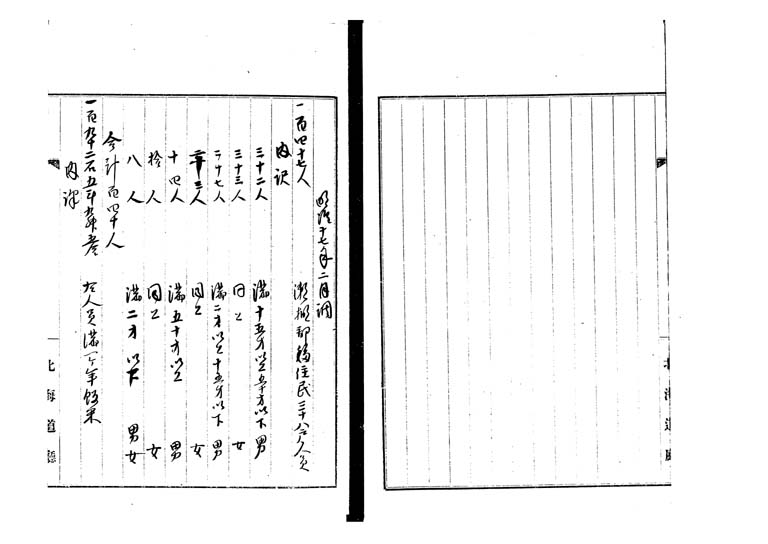 明治十七年二月調
一百四十七人 瀬棚郡移住民三十八戸人員
内訳
三十二人 満十五才以上五十才以下 男
三十三人 同上 女
二十七人 満二才以上十五才以下 男
二十三人 同上 女
十四人 満五十才以上 男
拾人 同上 女
八人 満二才以下 男女
合計百四十人
一百九十二石五斗 人員満一ヶ年飯米
内訳
北海道廳
北海道廳